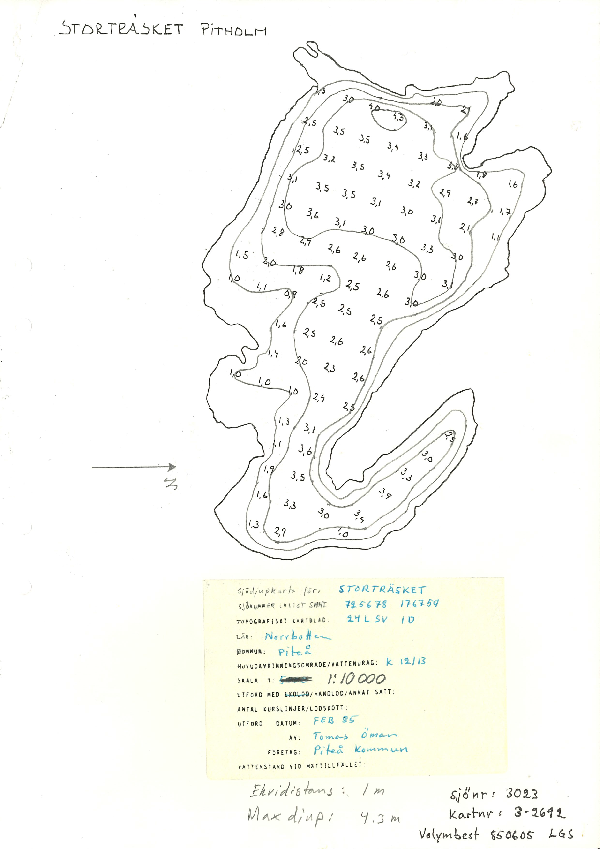 STORTRÄSKET PITHOLM
1,5 3,0 4,0 4,3 2,0 2,1
2,5 3,5 3,5 3,4 3,1 1,6
2,5 3,2 3,5 3,4 3,2 3,3 1,8 1,6
3,1 3,5 3,5 3,1 3,0 2,9 2,3 1,7
3,0 3,6 3,1 3,0 3,0 3,1 2,1 1,1
2,8 2,9 2,6 2,6 2,6 3,3 3,0
1,5 2,0 1,8 1,2 2,5 2,6 3,0 3,1
1,0 1,1 0,8 2,5 2,5 2,5 3,0
1,6 2,5 2,6 2,6
1,4 2,0 2,3 2,6
1,0 1,0 1,0 2,4 2,5
1,3 3,1
1,1 3,6
1,9 3,5
1,6 3,3 3,0 3,4 3,9 3,3 3,0 2,5
1,3 2,9 1,0
N
Sjödjupkarta för: STORTRÄSKET
SJÖNUMMER ENLIGT SMHI 725678 176754
TOPOGRAFISKT KARTBLAD: 24 L SV 1D
LÄN: Norrbotten
KOMMUN: Piteå
HUVUDAVRINNINGSOMRÅDE/VATTENDRAG: K 12/13
SKALA 1: 1:10 000
UTFÖRD MED EKOLOD/HANDLOD/ANNAT SÄTT:
ANTAL KURSLINJER/LODSKOTT:
UTFÖRD DATUM: FEB 85
AV: Tomas Öman
FÖRETAG: Piteå Kommun
VATTENSTÅND VID MÄTTILLFÄLLET:
Ekvidistans: 1 m
Max djup: 4.3 m
Sjönr: 3023
Kartnr: 3-2692
Volymbest 850605 LGS